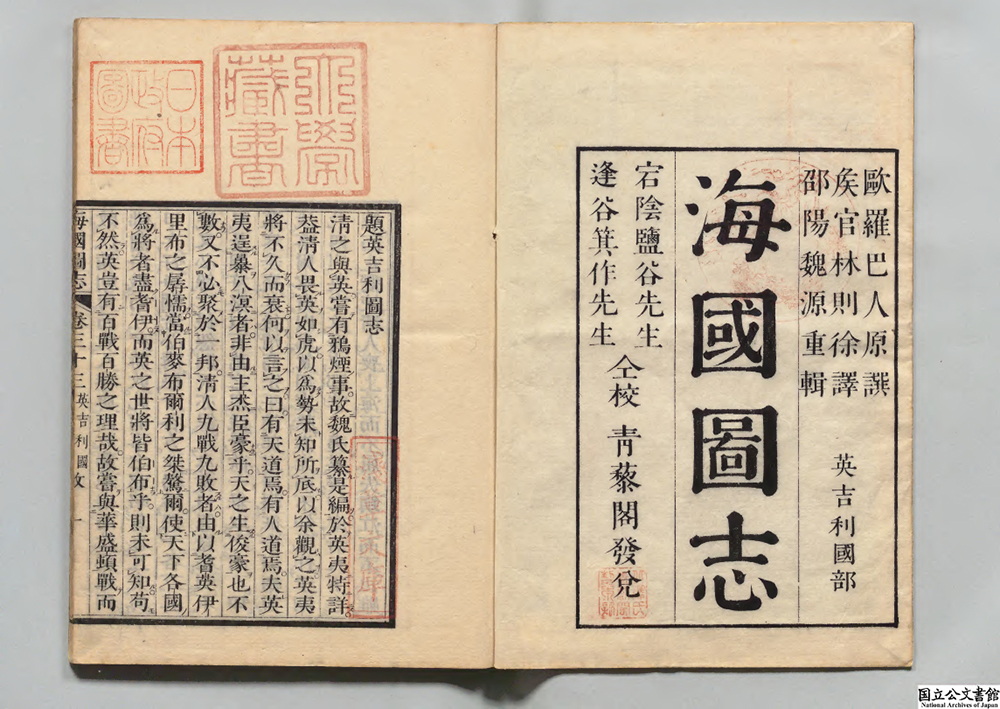 歐羅巴人原譔
矦官林則徐譯
邵陽魏源重輯
英吉利國部
海國圖志
宕陰鹽谷先生
逢谷箕作先生
仝校
靑藜閣發兌
大學
藏書
日本
政府
圖書
題英吉利圖志
淸之與英嘗有鴉煙事故魏氏纂是編於英夷特詳
葢淸人畏英如虎以爲勢未知所底以余觀之英夷
將不久而衰何以言之曰有天道焉有人道焉夫英
夷逞暴八溟者非由主杰臣豪乎天之生俊豪也不
數又不必聚於一邦淸人九戰九敗者由以耆英伊
里布之孱懦當伯麥布爾利之桀驁爾使天下各國
爲將者盡耆伊而英之世將皆伯布乎則未可知苟
不然英豈有百戰百勝之理哉故嘗與華盛頓戰而
海國圖志
卷三十三
英吉利國
一
国立公文書館
National Archives of Japan